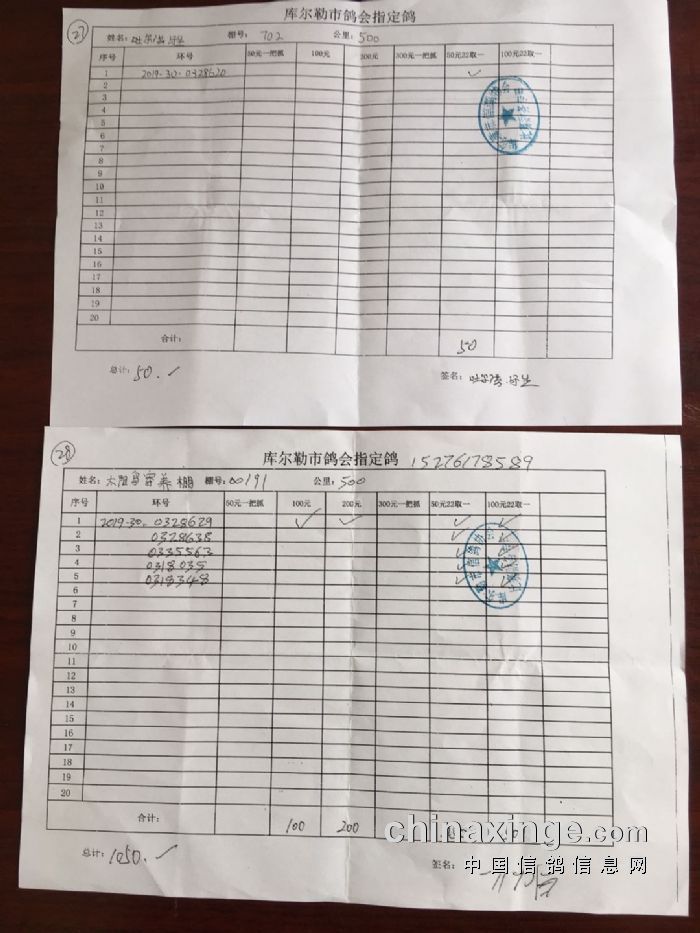 27
库尔勒市鸽会指定鸽
姓名: 棚号: 702 公里: 500
序号 环号 50元一把抓 100元 200元 300元一把抓 50元22取一 100元22取一
1 2019-30-0328620 ✓
2
3
4
5
6
7
8
9
10
11
12
13
14
15
16
17
18
19
20
合计: 50
总计: 50. ✓ 签名:
28
库尔勒市鸽会指定鸽 15276178589
姓名: 棚号: 00191 公里: 500
序号 环号 50元一把抓 100元 200元 300元一把抓 50元22取一 100元22取一
1 2019-30-0328629 ✓ ✓ ✓ ✓
2 0328638 ✓ ✓
3 0335563 ✓ ✓
4 0318035 ✓ ✓
5 0318348 ✓ ✓
6
7
8
9
10
11
12
13
14
15
16
17
18
19
20
合计: 100 200
总计: 1050. ✓ 签名:
chinaxinge.com
中国信鸽信息网